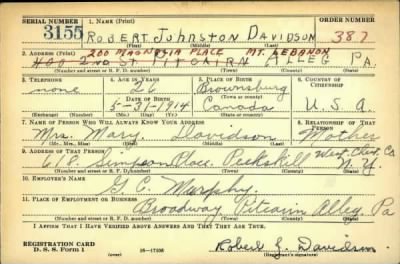 SERIAL NUMBER 1. NAME (Print) ORDER NUMBER
3155 ROBERT JOHNSTON DAVIDSON 387
(First) (Middle) (Last)
2. ADDRESS (Print) 200 MAGNOLIA PLACE MT. LEBANON
400 2ND ST. PITCAIRN ALLEG PA.
(Number and street or R. F. D. number) (Town) (County) (State)
3. TELEPHONE 4. AGE IN YEARS 5. PLACE OF BIRTH 6. COUNTRY OF CITIZENSHIP
none 26 Brownsburg
DATE OF BIRTH (Town or county)
5-31-1914 Canada U.S.A.
(Exchange) (Number) (Mo.) (Day) (Yr.) (State or country)
7. NAME OF PERSON WHO WILL ALWAYS KNOW YOUR ADDRESS 8. RELATIONSHIP OF THAT PERSON
Mrs. Mary Davidson Mother
(Mr., Mrs., Miss) (First) (Middle) (Last)
9. ADDRESS OF THAT PERSON West Chest Co
618 Simpson Place, Peekskill N.Y.
(Number and street or R. F. D. number) (Town) (County) (State)
10. EMPLOYER'S NAME
G. C. Murphy
11. PLACE OF EMPLOYMENT OR BUSINESS
Broadway, Pitcairn Alleg. Pa
(Number and street or R. F. D. number) (Town) (County) (State)
I AFFIRM THAT I HAVE VERIFIED ABOVE ANSWERS AND THAT THEY ARE TRUE.
REGISTRATION CARD
D. S. S. Form 1 16-17105 Robert J. Davidson
(Registrant's signature)